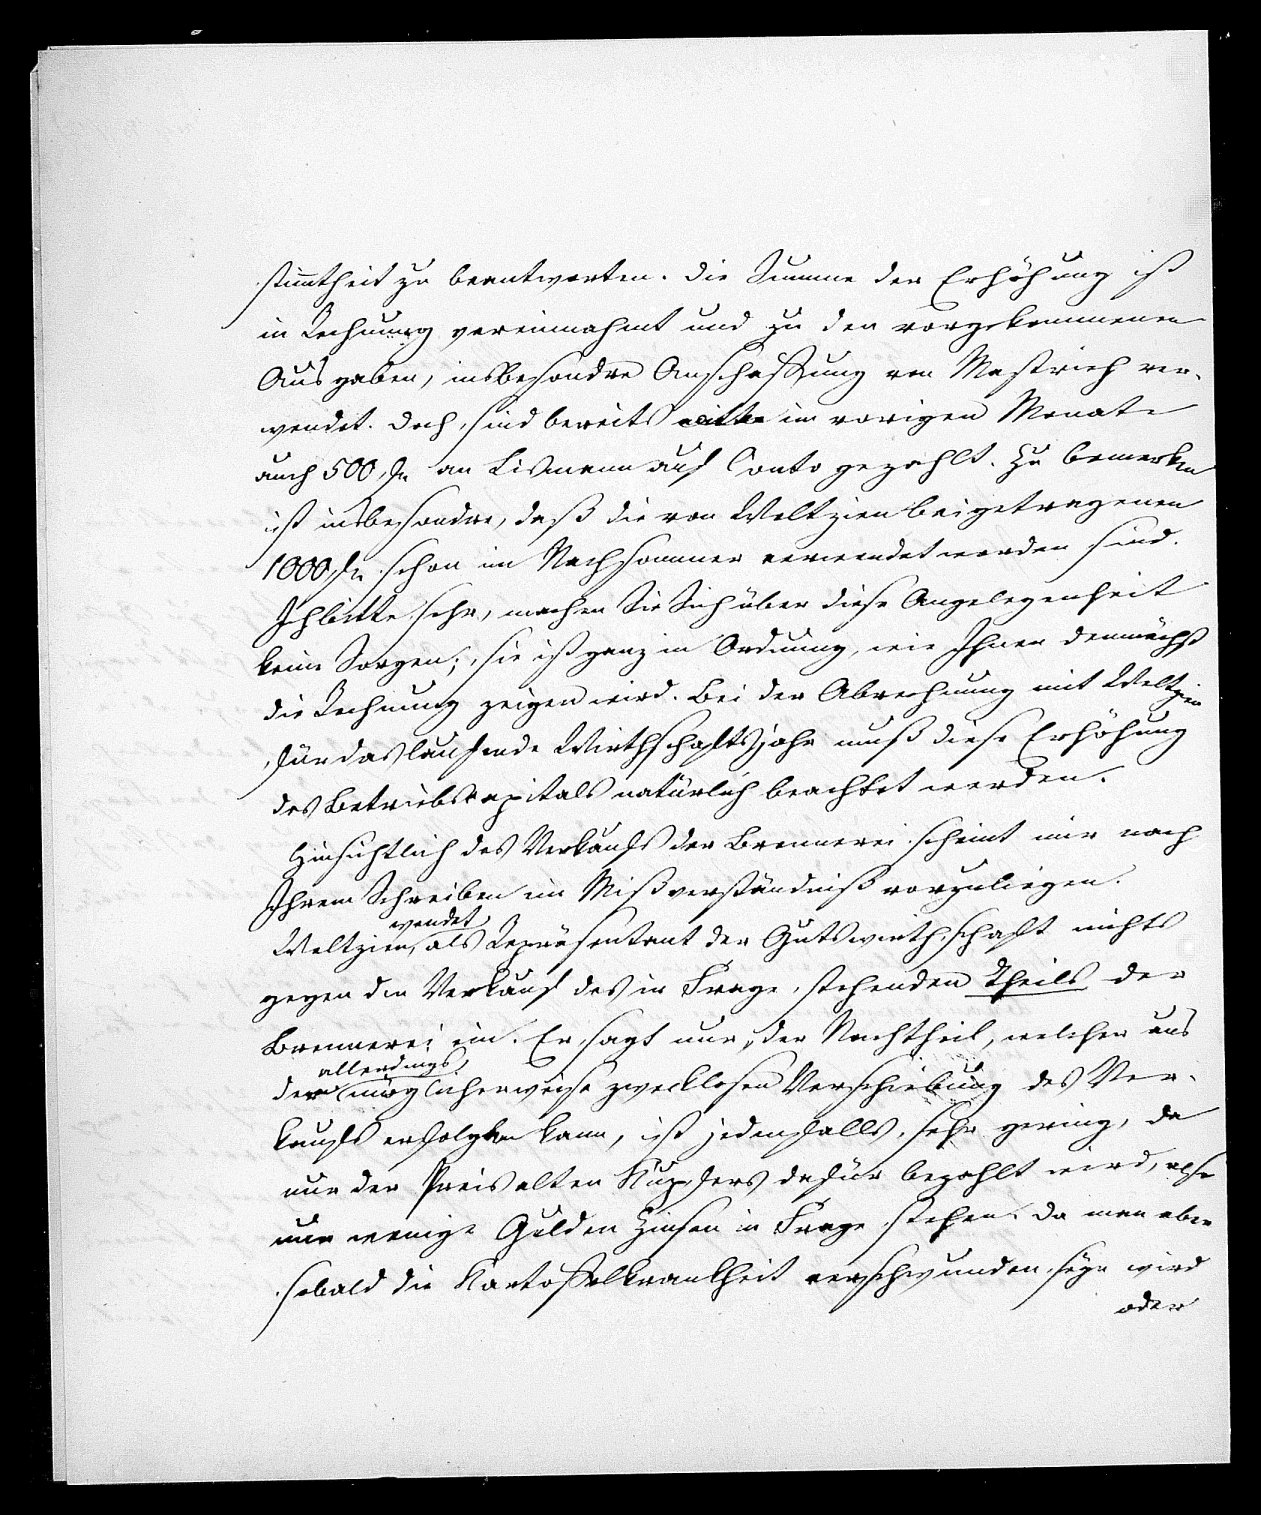 stimtheit zu beantworten. Die Summe der Erhöhung ist
in Rechnung vereinnahmt und zu den vorgekommenen
Ausgaben, insbesondre Anschaffung von Mastvieh ver-
wendet. Doch sind bereits im vorigen Monate
auch 500 fl. an Lismann auf Conto gezahlt. Zu bemerken
ist insbesondre, daß die von Weltzien beigetragenen
1000 fl. schon im Nachsommer verwendet worden sind.
Ich bitte sehr, machen Sie Sich über diese Angelegenheit
keine Sorgen; sie ist ganz in Ordnung, wie Ihnen demnächst
die Rechnung zeigen wird. Bei der Abrechnung mit Weltzien
für das laufende Wirthschaftsjahr muß diese Erhöhung
des Betriebskapitals natürlich beachtet werden.
Hinsichtlich des Verkaufs der Brennerei scheint mir nach
Ihrem Schreiben ein Mißverständniß vorzuliegen.
wendet
Weltzien, als Repräsentant der Gutswirthschaft nichts
gegen den Verkauf des in Frage stehenden Theils der
Brennerei ein. Er sagt nur, der Nachtheil, welcher uns
allerdings
der möglicherweise zwecklosen Verschiebung des Ver-
kaufs erfolgen kann, ist jedenfalls sehr gering, da
nur der Preis alten Kupfers dafür bezahlt wird, also
nur wenige Gulden Zinsen in Frage stehen. Da man aber
sobald die Kartoffelkrankheit verschwunden seyn wird
oder